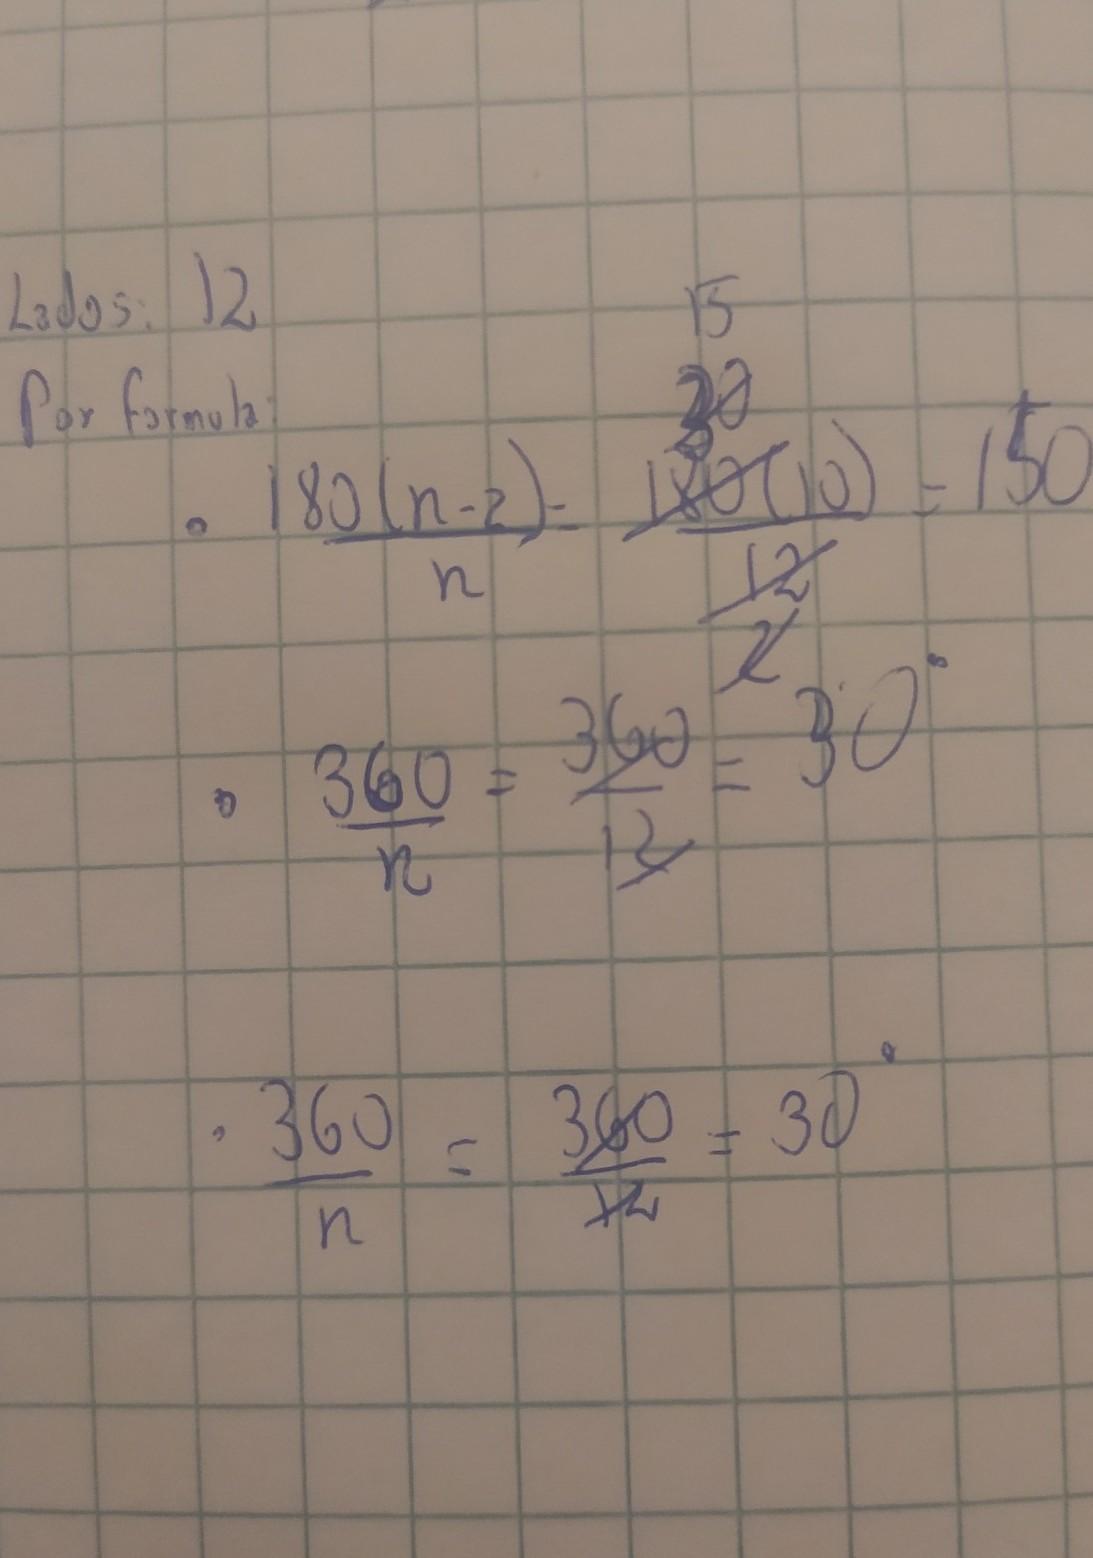 Lados: 12
Por formula:
15
30
• 180(n-2)/n = 180(10)/12 = 150
2
• 360/n = 360/12 = 30°
• 360/n = 360/12 = 30°